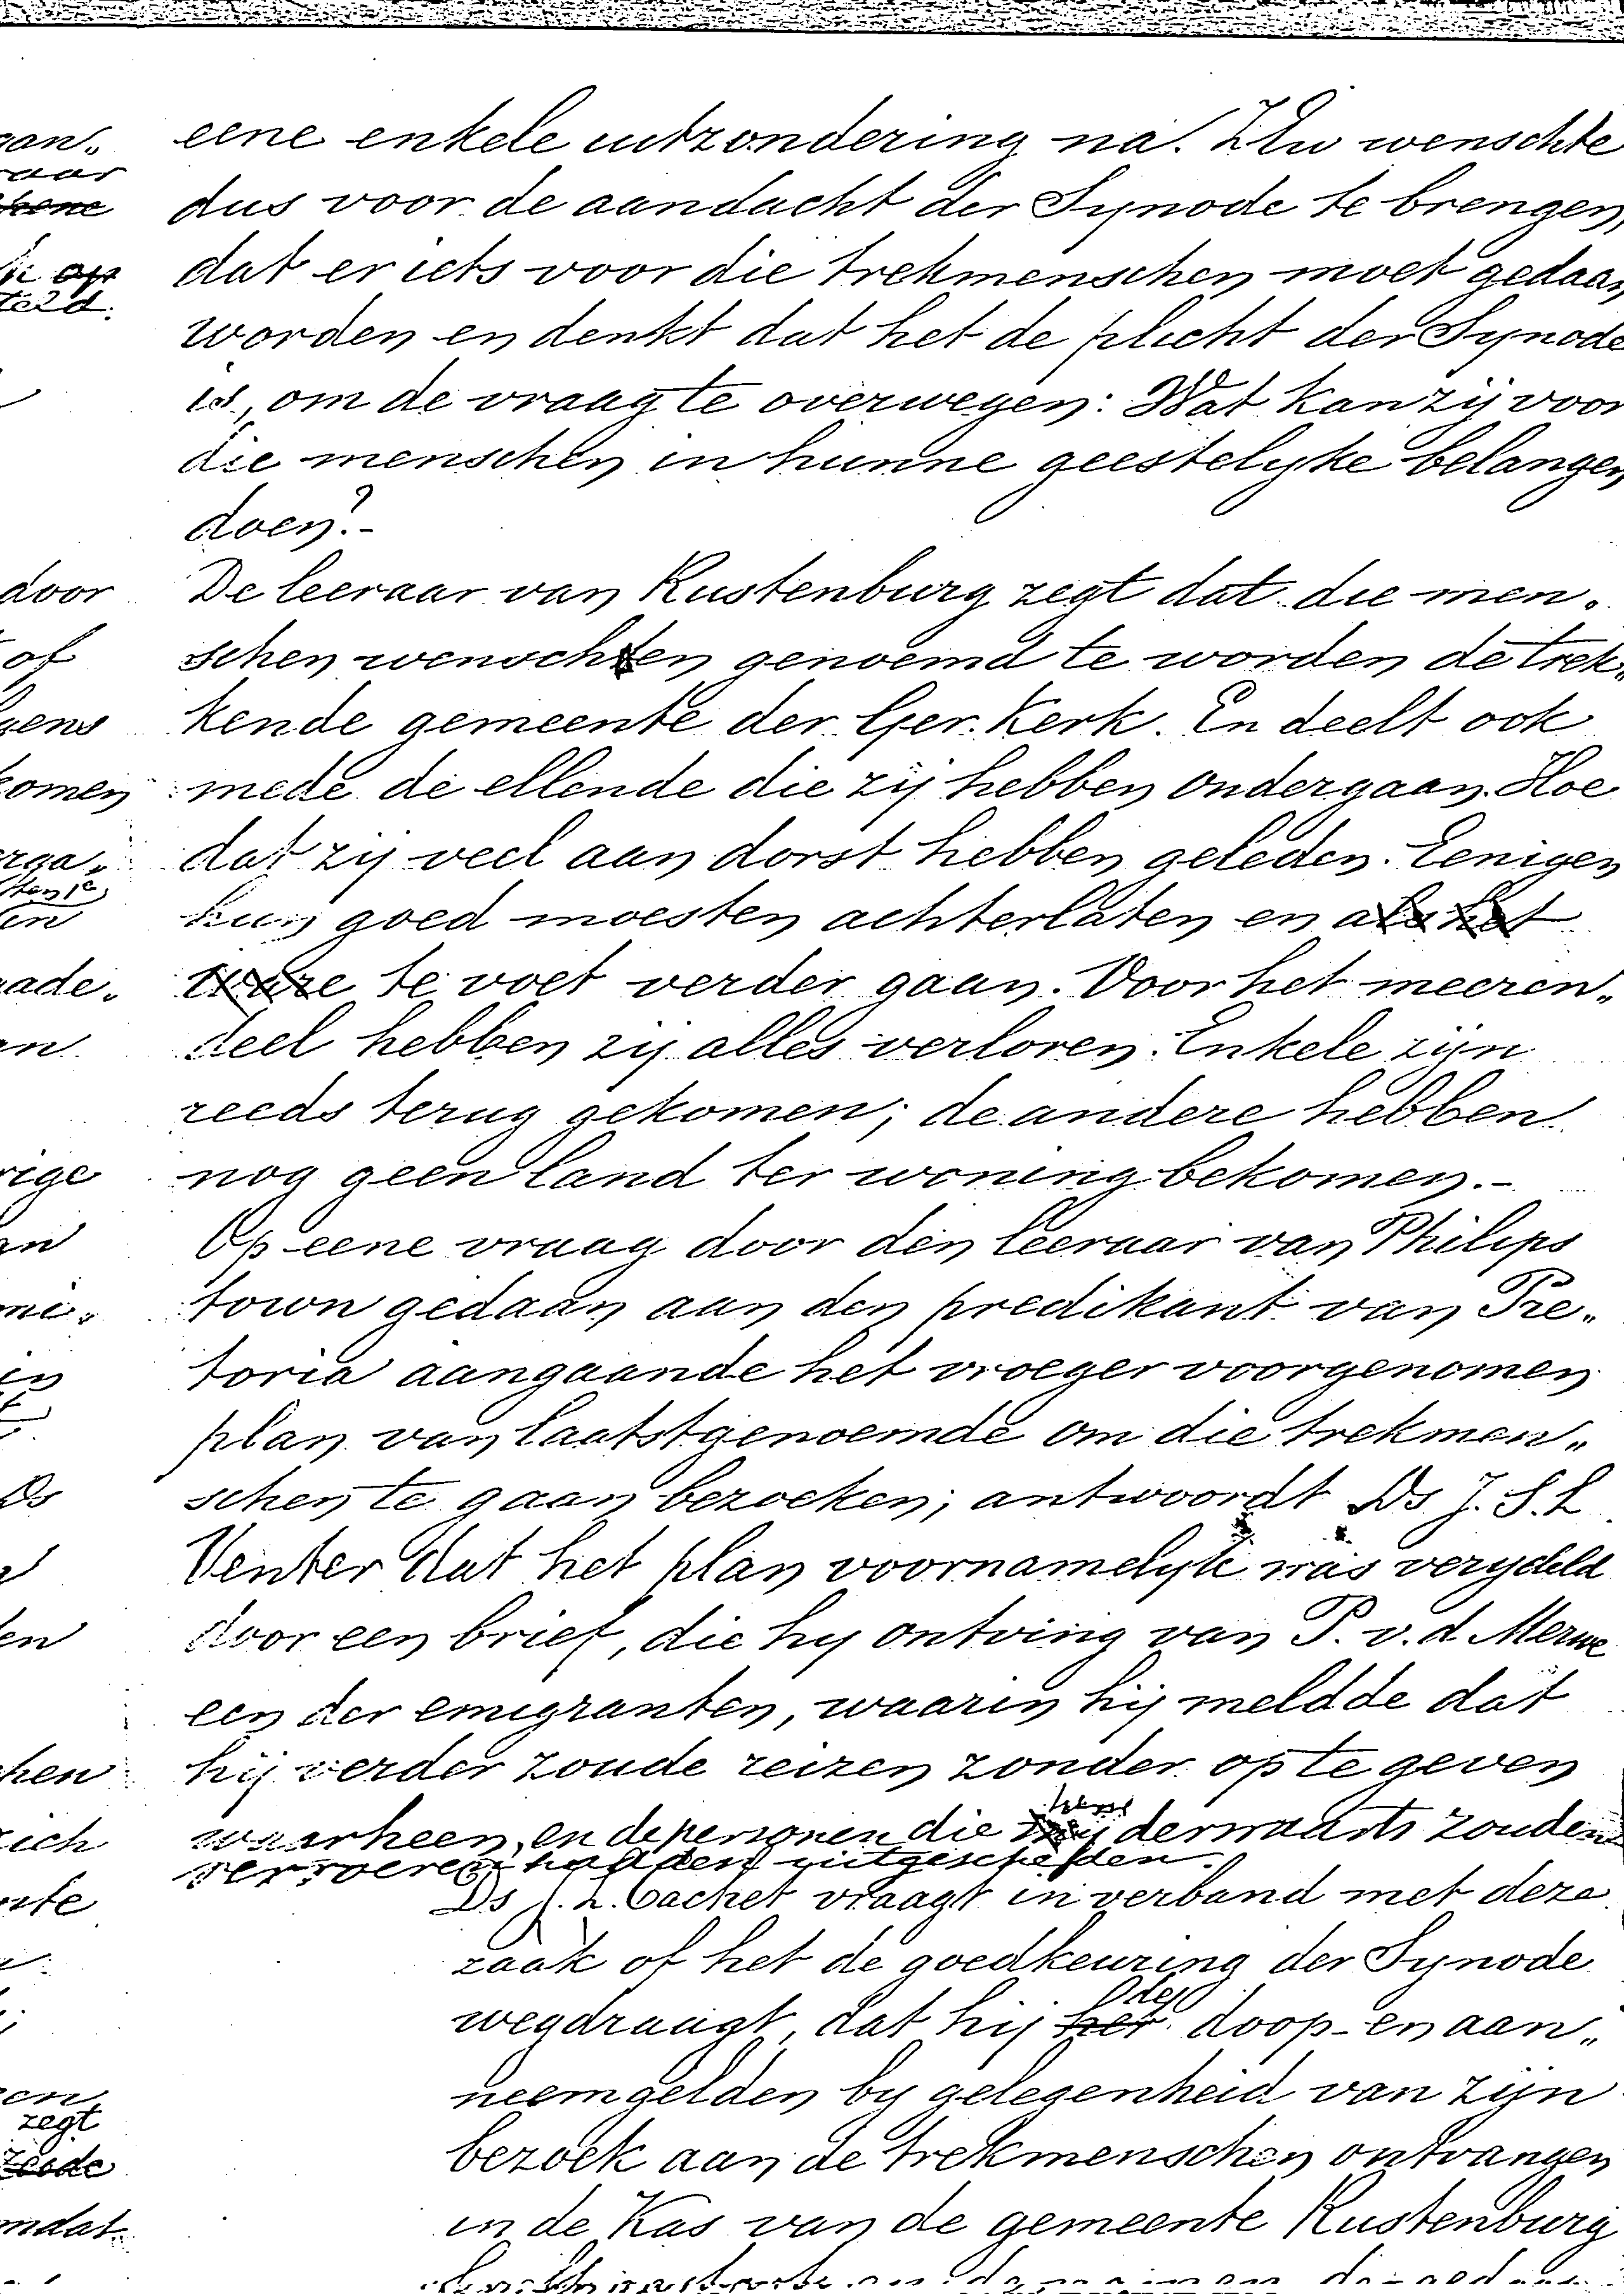 eene enkele uitzondering na. ZEw wenschte
dus voor de aandacht der Synode te brengen,
dat er iets voor die trekmenschen moet gedaan
worden en denkt dat het de plicht der Synode
is, om de vraag te overwegen: Wat kan zij voor
die menschen in hunne geestelijke belangen
doen?-
De leeraar van Rustenburg zegt dat die men„
schen wenschten genoemd te worden de trek„
kende gemeente der Ger. Kerk. En deelt ook
mede de ellende die zij hebben ondergaan. Hoe
dat zij veel aan dorst hebben geleden. Eenigen
hun goed moesten achterlaten en als het
ware te voet verder gaan. Voor het meeren„
deel hebben zij alles verloren. Enkele zijn
reeds terug gekomen; de andere hebben
nog geen land ter woning bekomen.-
Op eene vraag door den leeraar van Philips
town gedaan aan den predikant van Pre„
toria aangaande het vroeger voorgenomen
plan van laatstgenoemde om die trekmen„
schen te gaan bezoeken; antwoordt Ds J. S. L
Venter dat het plan voornamelijk was verydeld
door een brief, die hy ontving van P. v. d. Merwe
een der emigranten, waarin hij meldde dat
hij verder zoude reizen zonder op te geven
waarheen, en de personen die hem derwaarts zouden
vervoeren hadden uitgescheiden.
Ds J. L. Cachet vraagt in verband met deze
zaak of het de goedkeuring der Synode
wegdraagt, dat hij het de doop- en aan„
neemgelden by gelegenheid van zijn
bezoek aan de trekmenschen ontvangen
in de Kas van de gemeente Rustenburg